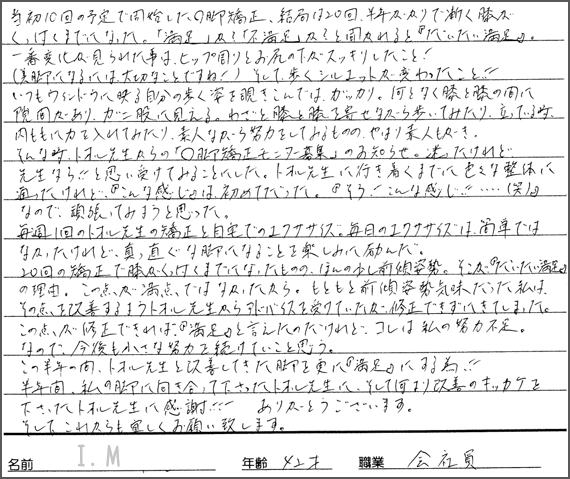 当初10回の予定で開始したO脚矯正、結局は20回、半年かかりで漸く膝が
くっけくまでになった。「満足」か「不満足」かと聞かれると『だいたい満足』。
一番変化が見られた事は、ヒップ周りとお尻の下がスッキリしたこと!
(美脚になるには大切なことですね!) そして、歩くシルエットが変わったこと!!
いつもウィンドウに映る自分の歩く姿を覗きこんでは、ガッカリ。何となく膝と膝の間に
隙間があり、ガニ股に見える。わざと膝と膝を寄せながら歩いてみたり、立っている時、
内ももに力を入れてみたり、素人ながら努力をしてみるものの、やはり素人むき。
そんな時、トオル先生からの「O脚矯正モニター募集」のお知らせ。迷ったけれど
先生なら!!と思い受けてみることにした。トオル先生に行き着くまでに色々な整体に
通ったけれど、『こんな感じ』は初めてだった。『そう!こんな感じ!!……(笑)』
なので、頑張ってみようと思った。
毎週1回のトオル先生の矯正と自宅でのエクササイズ。毎日のエクササイズは、簡単では
なかったけれど、真っ直ぐな脚になることを楽しみに励んだ。
20回の矯正で膝がくっけくまでになったものの、ほんの少し前傾姿勢。そこが『だいたい満足』
の理由。この点が満点、ではなかったから。もともと前傾姿勢気味だった私は、
その点を改善するようトオル先生からアドバイスを受けていたが、修正できずにきてしまった。
この点が修正できれば『満足』と言えたのだけれど、コレは私の努力不足。
なので、今後も小さな努力を続けていこと思う。
この半年の間、トオル先生と改善してきた脚を更に『満足』にする為!!
半年間、私の脚に向き合って下さったトオル先生に、そして何より改善のキッカケを
下さったトオル先生に感謝!!! ありがとうございます。
そしてこれからも宜しくお願い致します。
名前 I.M 年齢 42才 職業 会社員